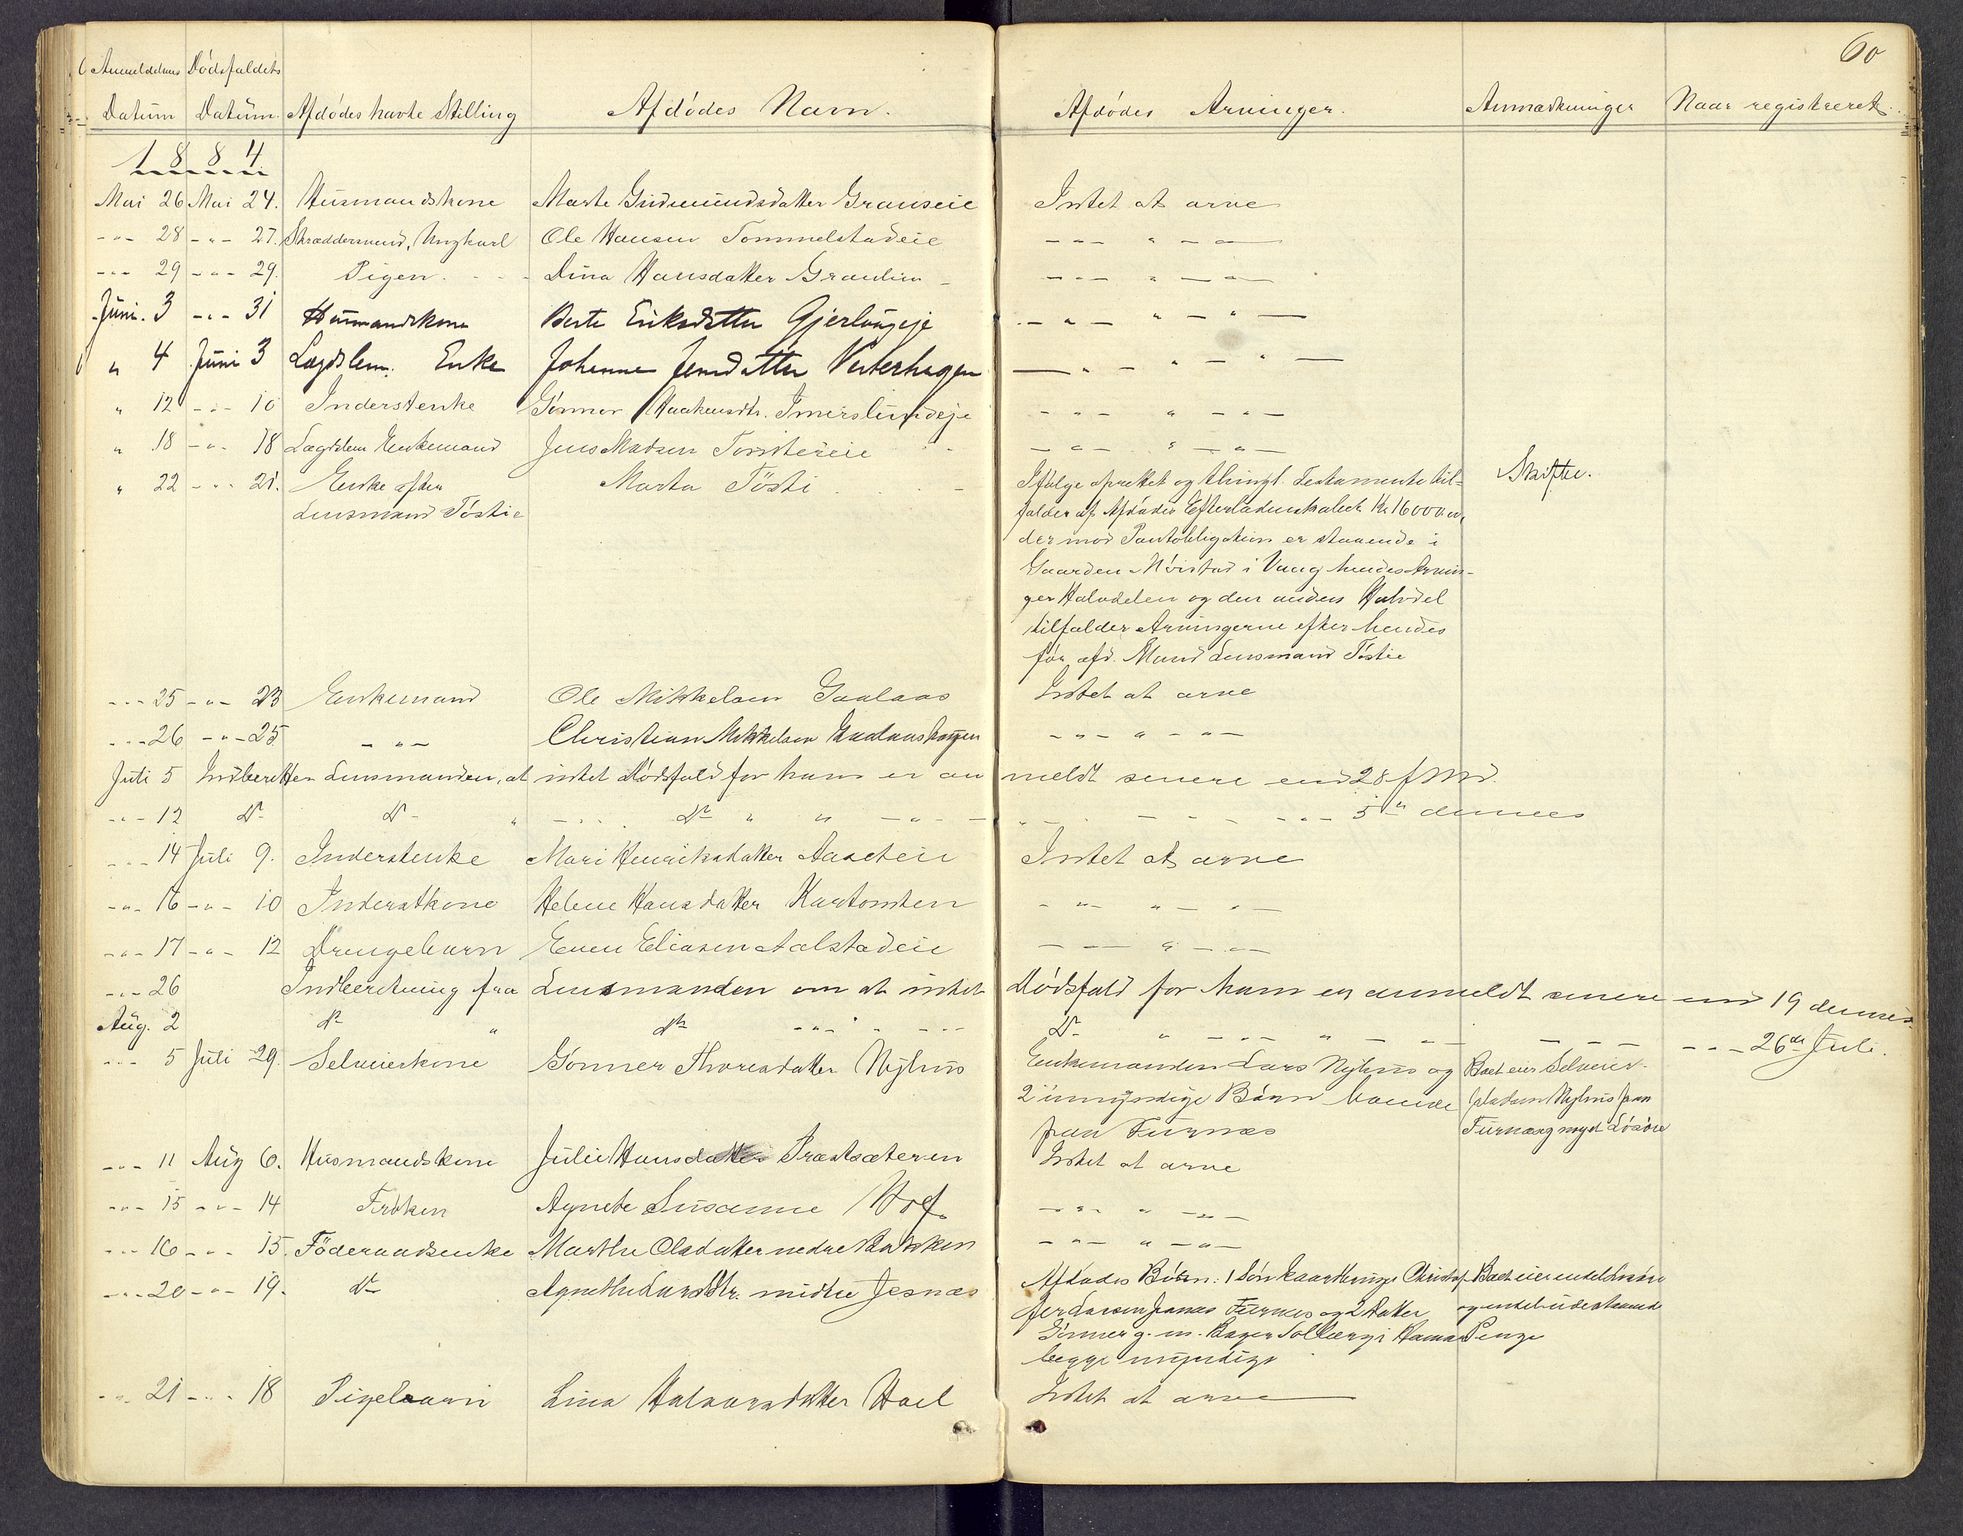 60
Anmeldelsens Dødsfaldets
Datum Datum Afdødes havte Stilling Afdødes Navn. Afdødes Arvinger. Anmærkninger Naar registreret.
1884
Mai 26 Mai 24. Husmandskone Marte Gudmundsdatter Granseie Intet at arve
-"- 28 -"- 27. Skræddersvend, Ungkarl Ole Hansen Tommelstadeie -"- " -"-
-"- 29 -"- 29. Pigen Dina Hansdatter -"- " -"-
Juni 3 -"- 31 Husmandskone Berte Eriksdatter Gjerlougeje -"- " -"-
" 4 Juni 3 Lægdslem. Enke Johanne Jensdatter Vesterhagen -"- " -"-
" 12 -"- 10 Inderstenke Gunnor Haakensdtr. Imerslundeje -"- " -"-
" 18 -"- 18 Lægdslem Enkemand Jens Madsen -"- " -"-
" 22 -"- 21. Enke efter Marta Tösti Ifølge oprettet og thingl. Testamente til- Skifte.
Lensmand Töstie falder af Afdødes Efterladenskaber Kr 16000.00,
der mod Pantobligation er staaende i
Gaarden Nøistad i Vang hendes Arvin-
ger Halvdelen og den anden Halvdel
tilfalder Arvingerne efter hendes
før afd. Mand Lensmand Töstie
-"- 25 -"- 23 Enkemand Ole Mikkelsen Gaalaas Intet at arve
-"- 26 -"- 25 -"- Christian Mikkelsen Gaalaashagen -"- " -"-
Juli 5 Indberetter Lensmanden, at intet Dødsfald for ham er anmeldt senere end 28 f. Md.
-"- 12 Do Do " -"- Do " " -"- 5te dennes
-"- 14 Juli 9. Inderstenke Mari Henriksdatter Aasteie Intet at arve
-"- 16 -"- 10 Inderstkone Helene Hansdatter Kartomten -"- " -"-
-"- 17 -"- 12 Drengebarn Even Eliasen Aalstadeie -"- " -"-
-"- 26 Indberetning fra Lensmanden om at intet Dødsfald for ham er anmeldt senere end 19 dennes.
Aug. 2 Do " Do -"- " -"- Do " -"- " -"- 26de Juli.
-"- 5 Juli 29. Selveierkone Gunner Thoresdatter Nyhus Enkemanden Lars Nyhus og Boet eier Selveier-
2 umyndige Børn boende pladsen Nyhus paa
paa Furnæs Furnæs og noget Løsøre
-"- 11 Aug 6. Husmandskone Julie Hansdatter Præstsæteren Intet at arve
-"- 15 -"- 14 Frøken Agnete Susanne Hof. -"- " -"-
-"- 16 -"- 15. Föderaadsenke Marthe Olsdatter nedre -"- " -"-
-"- 20 -"- 19. Do Agnethe Larsdtr. midtre Jesnæs Afdødes Børn: 1 Søn Gaardbruger Christof- Boet eier endel Løsøre
fer Larsen Jesnæs Furnæs og 2 Døtter og endel udestaaende
Gunner g. m. Bager Solberg i Hamar Penge
begge myndige
-"- 21 -"- 18 Pigebarn Lina Halvorsdatter Hoel Intet at arve